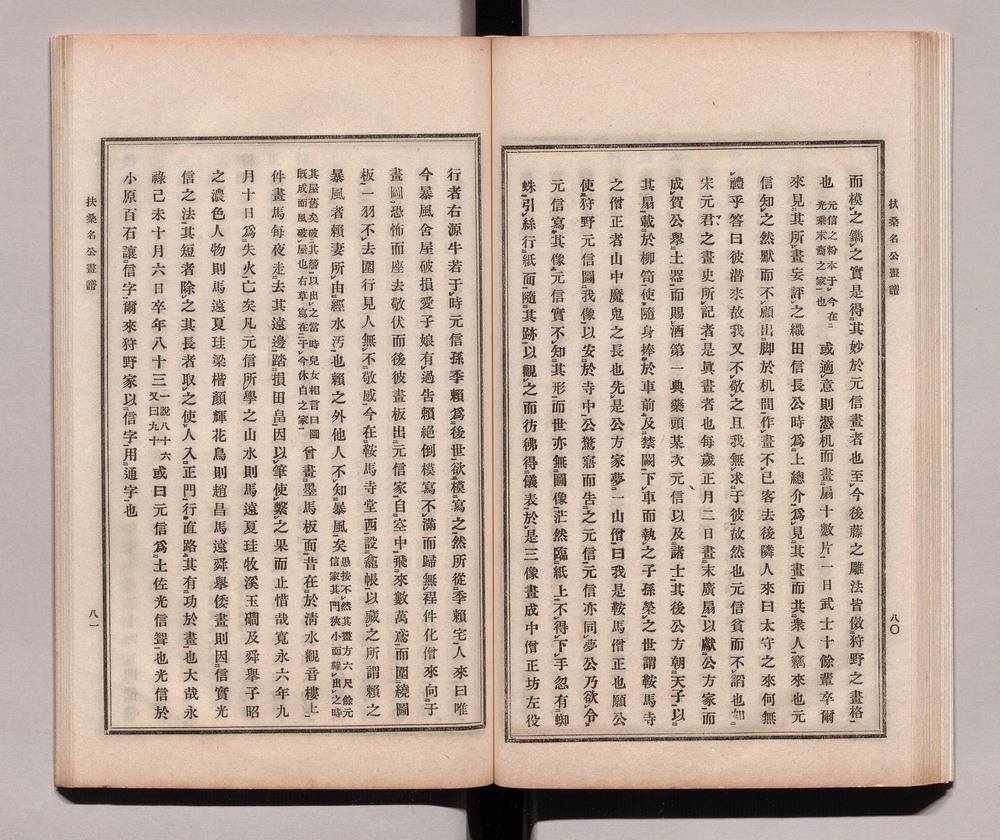 扶桑名公畫譜
八〇
而模之鐫之實是得其妙於元信畫者也至今後藤之雕法皆傚狩野之畫格
也元信之粉本于今在光乘末裔之家也或適意則憑机而畫扇十數片一日武士十餘輩卒爾
來見其所畫妄評之織田信長公時爲上總介爲見其畫而共衆人竊來也元
信知之然默而不顧出脚於机間作畫不已客去後隣人來曰太守之來何無
禮乎答曰彼潛來故我又不敬之且我無求于彼故然也元信貧而不諂也如
宋元君之畫史所記者是眞畫者也每歲正月二日畫末廣扇以獻公方家而
成賀公擧土器而賜酒第一典藥頭某次元信以及諸士其後公方朝天子以
其扇載於柳筥使隨身捧於車前及禁闕下車而執之子孫榮之世謂鞍馬寺
之僧正者山中魔鬼之長也先是公方家夢一山僧曰我是鞍馬僧正也願公
使狩野元信圖我像以安於寺中公驚寤而告之元信元信亦同夢公乃欲令
元信寫其像元信實不知其形而世亦無圖像茫然臨紙上不得下手忽有蜘
蛛引絲行紙面隨其跡以觀之而彷彿得儀表於是三像畫成中僧正坊左役
行者右源牛若于時元信孫季賴爲後世欲模寫之然所從季賴宅人來曰唯
今暴風舍屋破損愛子娘有過告賴絕倒模寫不滿而歸無程件化僧來向于
畫圖恐怖而座去敬伏而後彼畫板出元信家自空中飛來數萬鳶而圍繞圖
板一羽不去圍行見人無不敬感今在鞍馬寺堂西設龕帳以藏之所謂賴之
暴風者賴妻所由經水汚也賴之外他人不知暴風矣愚按不然其畫方六尺餘元信家其門狹小而難出之時
其屋舊矣破其簷以出之當時兒女相言曰圖既成而風破屋也右草寫在于今休白之家曾畫墨馬板面昔在於淸水觀音樓上
件畫馬每夜走去其遠邊踏損田畠因以筆使繫之果而止惜哉寬永六年九
月十日爲失火亡矣凡元信所學之山水則馬遠夏珪牧溪玉礀及舜擧子昭
之濃色人物則馬遠夏珪梁楷顏輝花鳥則趙昌馬遠舜擧倭畫則因信實光
信之法其短者除之其長者取之使人入正門行直路其有功於畫也大哉永
祿己未十月六日卒年八十三一說八十六又曰九十或曰元信爲土佐光信聟也光信於
小原百石讓信字爾來狩野家以信字用通字也
扶桑名公畫譜
八一